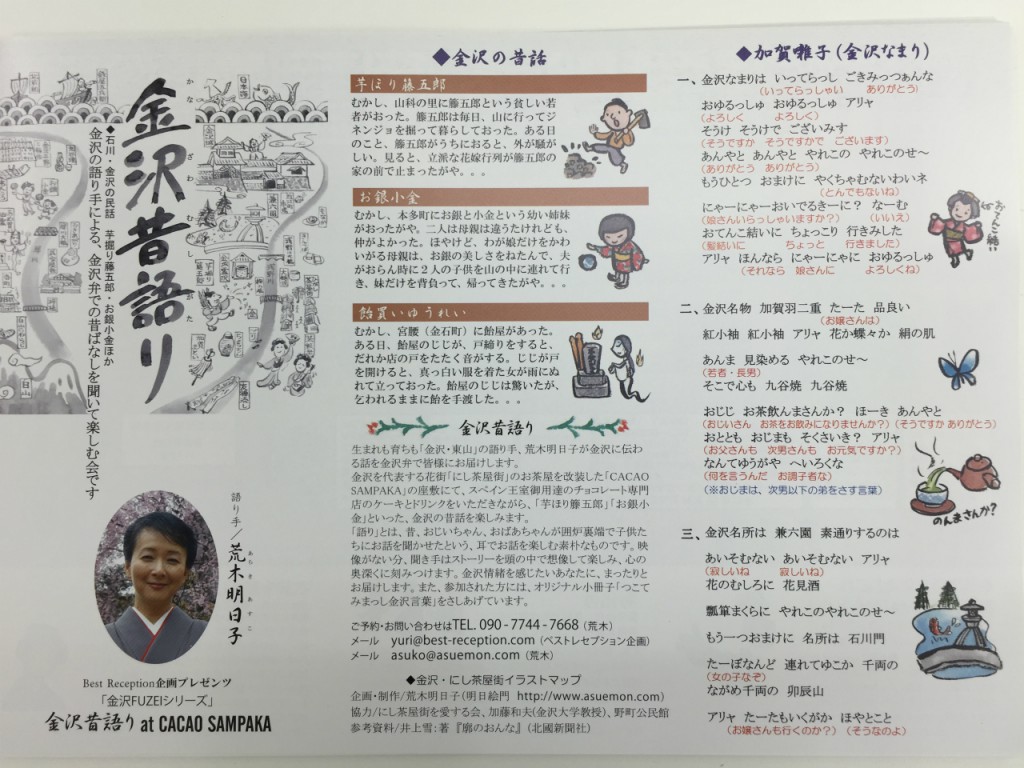 金沢昔語り
かなざわむかしがたり
◆石川・金沢の民話　芋掘り藤五郎・お銀小金ほか
金沢の語り手による、金沢弁での昔ばなしを聞いて楽しむ会です
語り手／荒木明日子
あらきあすこ
Best Reception企画プレゼンツ
「金沢FUZEIシリーズ」
金沢昔語り at CACAO SAMPAKA
◆金沢の昔話
芋ほり籐五郎
むかし、山科の里に籐五郎という貧しい若
者がおった。籐五郎は毎日、山に行ってジ
ネンジョを掘って暮らしておった。ある日
のこと、籐五郎がうちにおると、外が騒が
しい。見ると、立派な花嫁行列が籐五郎の
家の前で止まったがや。。。
お銀小金
むかし、本多町にお銀と小金という幼い姉妹
がおったがや。二人は母親は違うたけれども、
仲がよかった。ほやけど、わが娘だけをかわ
いがる母親は、お銀の美しさをねたんで、夫
がおらん時に２人の子供を山の中に連れて行
き、妹だけを背負って、帰ってきたがや。。。
飴買いゆうれい
むかし、宮腰（金石町）に飴屋があった。
ある日、飴屋のじじが、戸締りをすると、
だれか店の戸をたたく音がする。じじが戸
を開けると、真っ白い服を着た女が雨にぬ
れて立っておった。飴屋のじじは驚いたが、
乞われるままに飴を手渡した。。。
金沢昔語り
生まれも育ちも「金沢・東山」の語り手、荒木明日子が金沢に伝わ
る話を金沢弁で皆様にお届けします。
金沢を代表する花街「にし茶屋街」のお茶屋を改装した「CACAO
SAMPAKA」の座敷にて、スペイン王室御用達のチョコレート専門
店のケーキとドリンクをいただきながら、「芋ほり籐五郎」「お銀小
金」といった、金沢の昔話を楽しみます。
「語り」とは、昔、おじいちゃん、おばあちゃんが囲炉裏端で子供た
ちにお話を聞かせたという、耳でお話を楽しむ素朴なものです。映
像がない分、聞き手はストーリーを頭の中で想像して楽しみ、心の
奥深くに刻みつけます。金沢情緒を感じたいあなたに、まったりと
お届けします。また、参加された方には、オリジナル小冊子「つこて
みまっし金沢言葉」をさしあげています。
ご予約・お問い合わせはTEL. 090 - 7744 - 7668（荒木）
メール　yuri@best-reception.com（ベストレセプション企画）
メール　asuko@asuemon.com（荒木）
◆金沢・にし茶屋街イラストマップ
企画・制作/荒木明日子(明日絵門　http://www.asuemon.com)
協力/にし茶屋街を愛する会、加藤和夫(金沢大学教授)、野町公民館
参考資料/井上雪：著『廓のおんな』（北國新聞社）
◆加賀囃子（金沢なまり）
一、金沢なまりは　いってらっし　ごきみっつぁんな
（いってらっしゃい　ありがとう）
おゆるっしゅ　おゆるっしゅ　アリャ
（よろしく　よろしく）
そうけ　そうけで　ございみす
（そうですか　そうですかで　ございます）
あんやと　あんやと　やれこの　やれこのせ〜
（ありがとう　ありがとう）
もうひとつ　おまけに　やくちゃむないわいネ
（とんでもないね）
にゃーにゃーおいでるきーに？　なーむ
（娘さんいらっしゃいますか？）　（いいえ）
おてんこ結いに　ちょっこり　行きみした
（髪結いに　ちょっと　行きました）
アリャ　ほんなら　にゃーにゃーに　おゆるっしゅ
（それなら　娘さんに　よろしくね）
おてんこ結い
二、金沢名物　加賀羽二重　たーた　品良い
（お嬢さんは）
紅小袖　紅小袖　アリャ　花か蝶々か　絹の肌
あんま　見染める　やれこのせ〜
（若者・長男）
そこで心も　九谷焼　九谷焼
おじじ　お茶飲んまさんか？　ほーき　あんやと
（おじいさん　お茶をお飲みになりませんか？）（そうですか ありがとう）
おととも　おじまも　そくさいき？　アリャ
（お父さんも　次男さんも　お元気ですか？）
なんてゆうがや　へいろくな
（何を言うんだ　お調子者な）
（※おじまは、次男以下の弟をさす言葉）
のんまさんか？
三、金沢名所は　兼六園　素通りするのは
あいそむない　あいそむない　アリャ
（寂しいね　寂しいね）
花のむしろに　花見酒
瓢箪まくらに　やれこのやれこのせ〜
もう一つおまけに　名所は　石川門
たーぼなんど　連れてゆこか　千両の
（女の子なぞ）
ながめ千両の　卯辰山
アリャ　たーたもいくがか　ほやとこと
（お嬢さんも行くのか？）（そうなのよ）